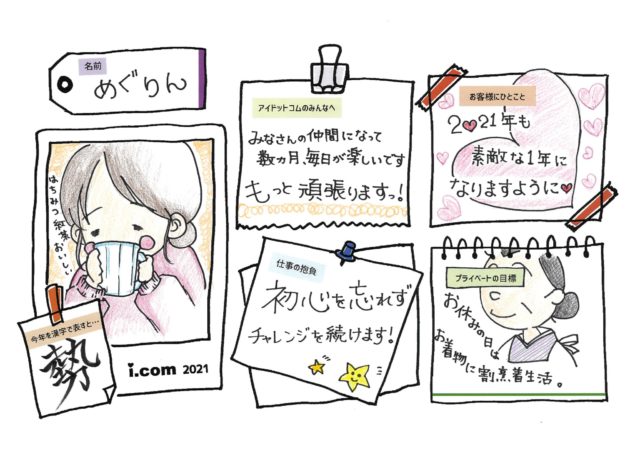 名前
めぐりん
はちみつ紅茶おいしい
今年を漢字で表すと…
勢
i.com 2021
アイドットコムのみんなへ
みなさんの仲間になって
数ヵ月、毎日が楽しいです
もっと頑張りますっ!
お客様にひとこと
2021年も
素敵な1年に
なりますように
仕事の抱負
初心を忘れず
チャレンジを続けます!
プライベートの目標
お休みの日は
お着物に割烹着生活。